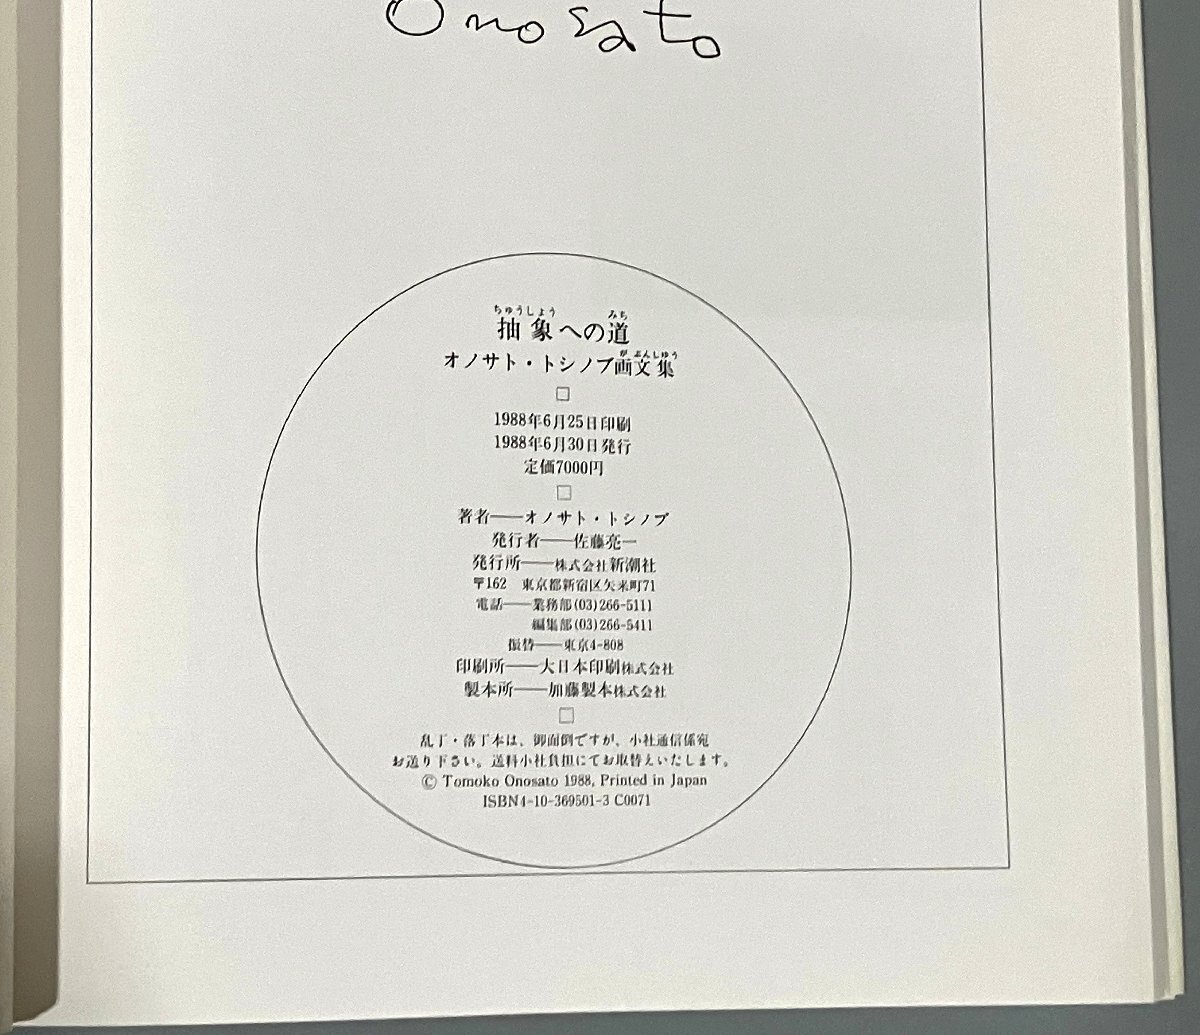 Onosato
ちゅうしょう みち
抽象への道
が ぶんしゅう
オノサト・トシノブ画文集
□
1988年6月25日印刷
1988年6月30日発行
定価7000円
□
著者――オノサト・トシノブ
発行者――佐藤亮一
発行所――株式会社新潮社
〒162 東京都新宿区矢来町71
電話――業務部(03)266-5111
編集部(03)266-5411
振替――東京4-808
印刷所――大日本印刷株式会社
製本所――加藤製本株式会社
□
乱丁・落丁本は、御面倒ですが、小社通信係宛
お送り下さい。送料小社負担にてお取替えいたします。
© Tomoko Onosato 1988, Printed in Japan
ISBN4-10-369501-3 C0071